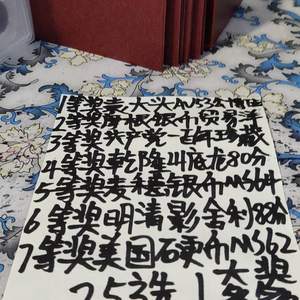 1等奖袁大头AU53金博伍
2等奖摩根银币贸易洋
3等奖共产党一百年珍藏
4等奖乾隆叫底龙80分
5等奖麦穗银币MS64
6等奖明清影舍利88分
7等奖美国硬币MS62
25选1大奖